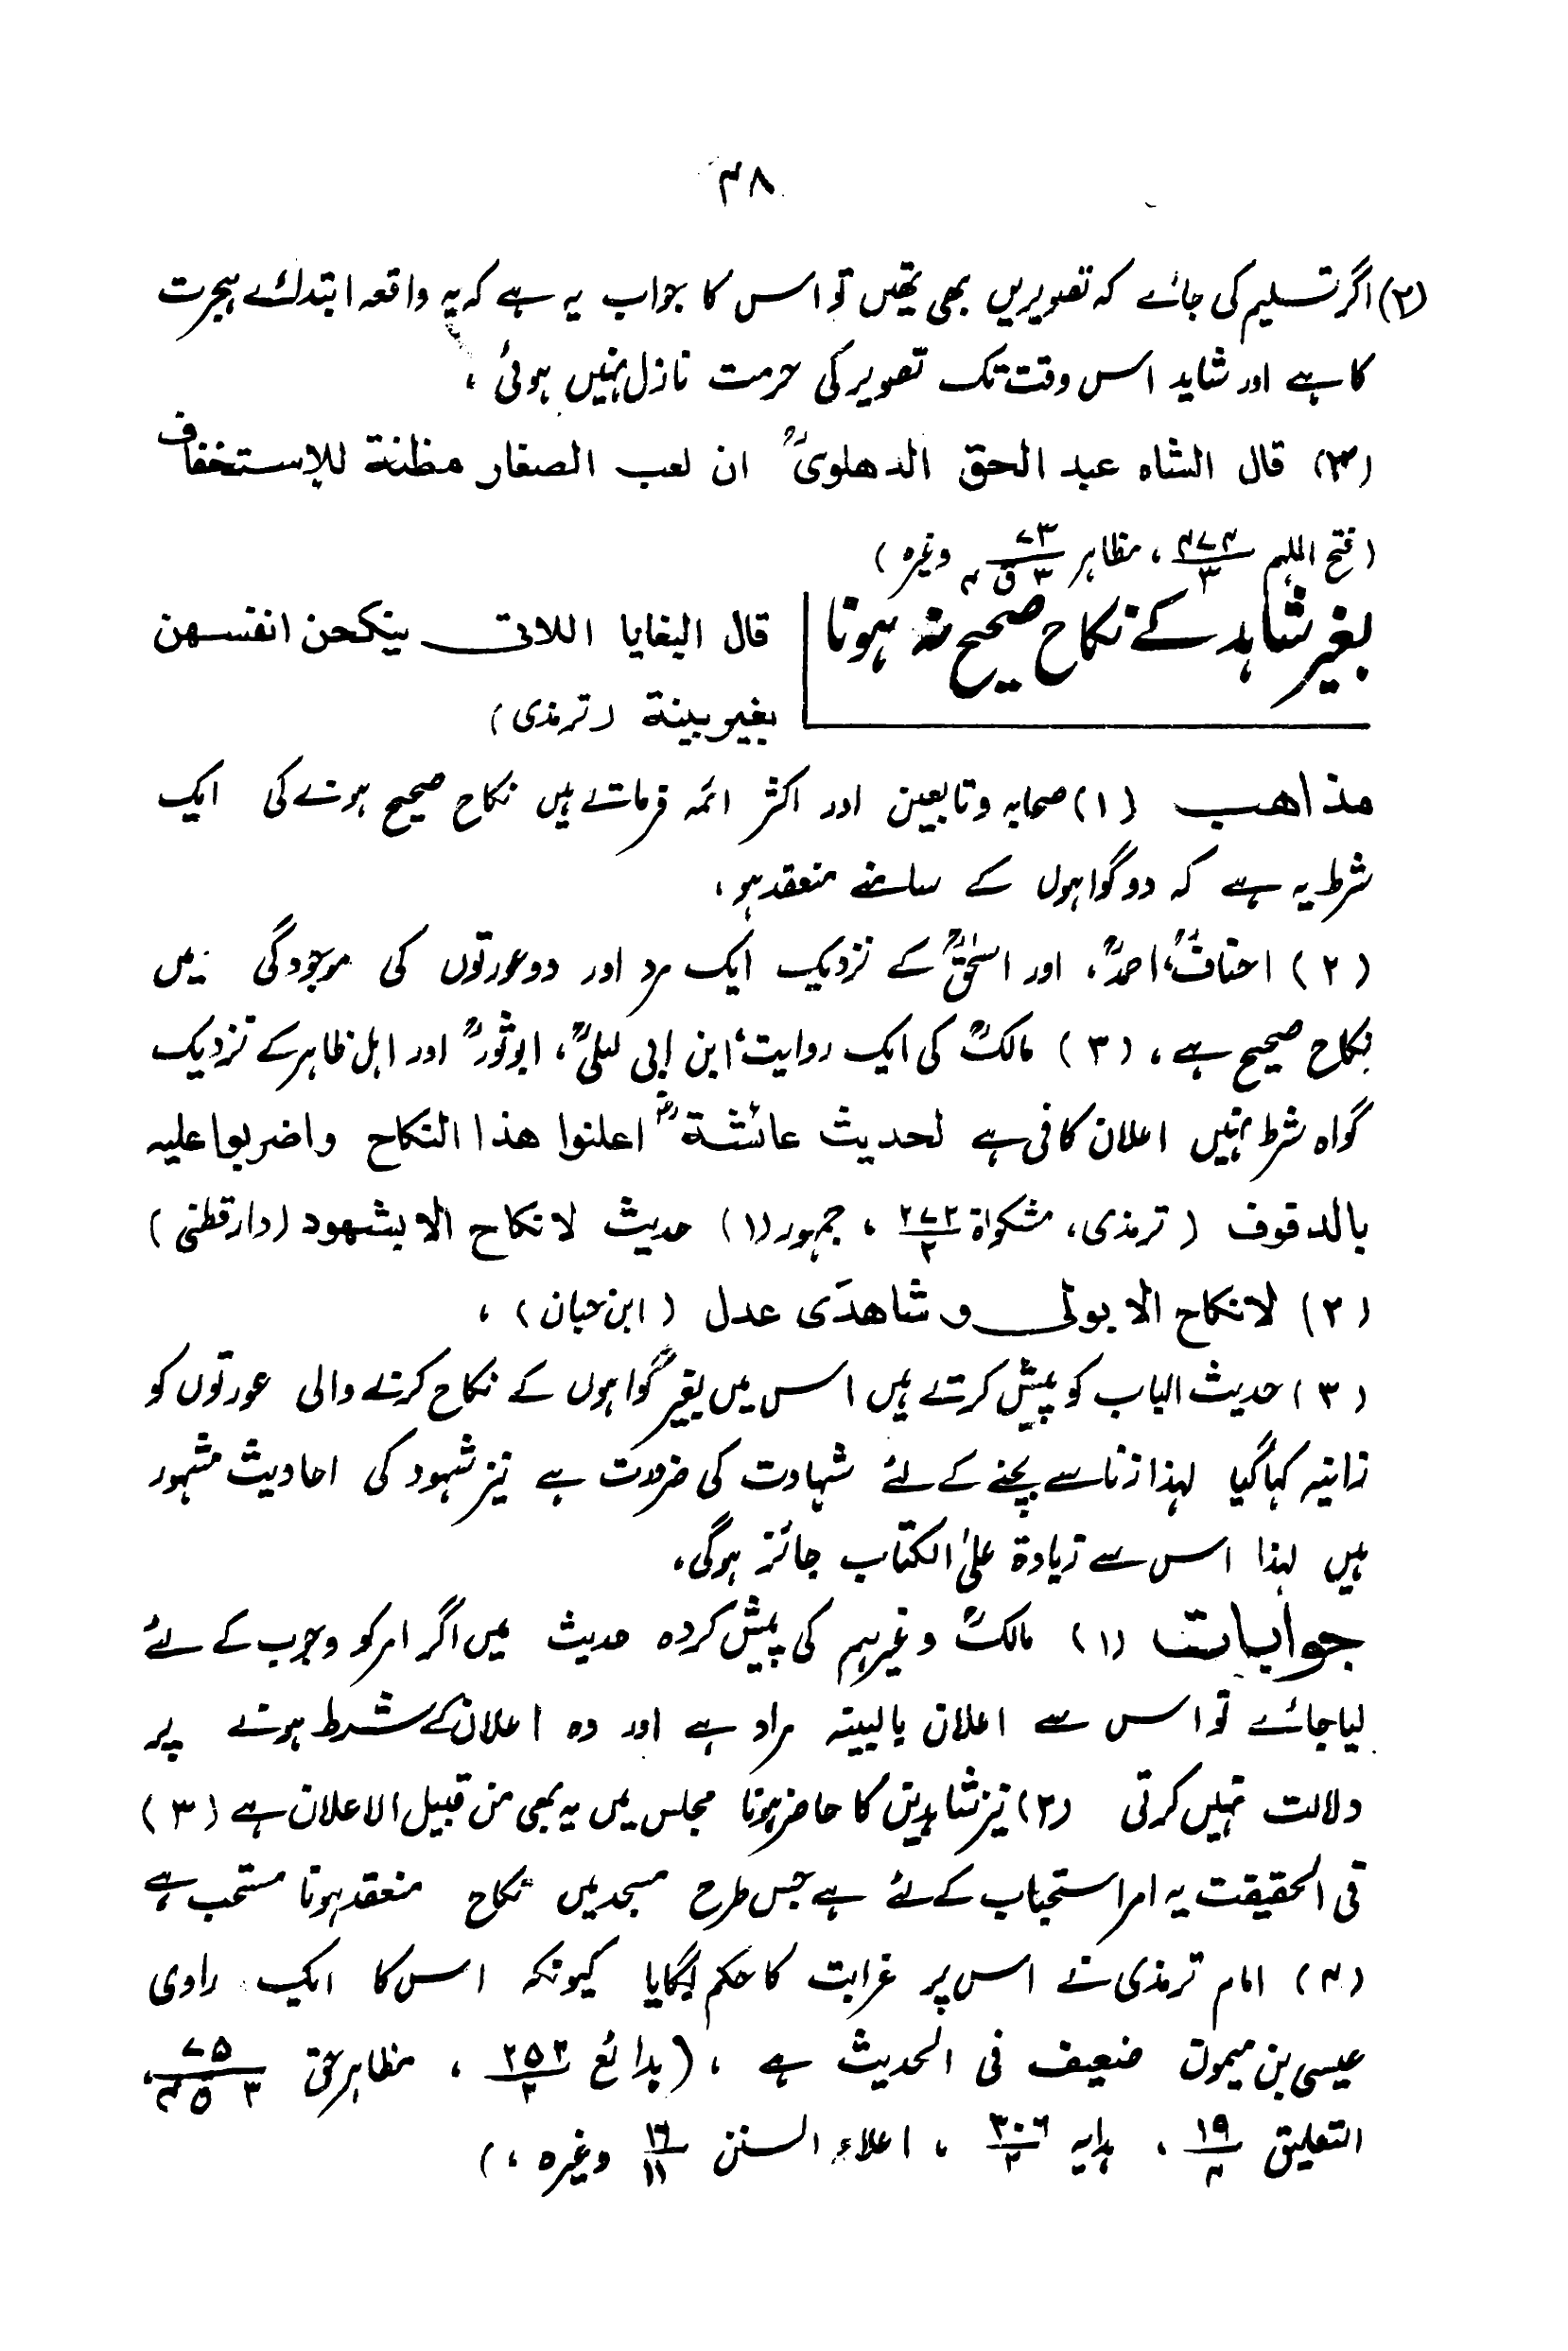 ۴۸
(۲) اگر تسلیم کی جائے کہ تصویریں بھی تھیں تو اس کا جواب یہ ہے کہ یہ واقعہ ابتدائے ہجرت
کا ہے اور شاید اس وقت تک تصویر کی حرمت نازل نہیں ہوئی ،
(۳) قال الشاہ عبد الحق الدھلویؒ ان لعب الصغار مظنة للإستخفاف
(فتح الملہم ۴۷۴/۳ ، مظاہر ۷۳/۳ ق ۴ وغیرہ)
بغیر شاہد کے نکاح صحیح نہ ہونا
قال البغایا اللاتی ینکحن انفسھن
بغیر بینة (ترمذی)
مذاھب (۱) صحابہ وتابعین اور اکثر ائمہ فرماتے ہیں نکاح صحیح ہونے کی ایک
شرط یہ ہے کہ دو گواہوں کے سامنے منعقد ہو ،
(۲) احنافؒ، احمدؒ، اور اسحٰقؒ کے نزدیک ایک مرد اور دو عورتوں کی موجودگی میں
نکاح صحیح ہے ، (۳) مالکؒ کی ایک روایت، ابن ابی لیلیٰؒ، ابوثورؒ اور اہل ظاہر کے نزدیک
گواہ شرط نہیں اعلان کافی ہے لحدیث عائشةؓ اعلنوا ھذا النکاح واضربوا علیہ
بالدفوف (ترمذی، مشکواۃ ۲۷۲/۲ ، جمہور (۱) حدیث لا نکاح الا بشھود (دارقطنی)
(۲) لا نکاح الا بولی و شاھدَی عدل (ابن حبان) ،
(۳) حدیث الباب کو پیش کرتے ہیں اس میں بغیر گواہوں کے نکاح کرنے والی عورتوں کو
زانیہ کہا گیا لہذا زنا سے بچنے کے لئے شہادت کی ضرورت ہے نیز شہود کی احادیث مشہور
ہیں لہذا اس سے زیادة علیٰ الکتاب جائز ہوگی ،
جوابات (۱) مالکؒ وغیرہم کی پیش کردہ حدیث میں اگر امر کو وجوب کے لئے
لیا جائے تو اس سے اعلان بالبینہ مراد ہے اور وہ اعلان کے شرط ہونے پر
دلالت نہیں کرتی (۲) نیز شاہدین کا حاضر ہونا مجلس میں یہ بھی من قبیل الاعلان ہے (۳)
فی الحقیقت یہ امر استحباب کے لئے ہے جس طرح مسجد میں نکاح منعقد ہونا مستحب ہے
(۴) امام ترمذی نے اس پر غرابت کا حکم لگایا کیونکہ اس کا ایک راوی
عیسی بن میمون ضعیف فی الحدیث ہے ، (بدائع ۲۵۳/۲ ، مظاہر حق ۷۵/۳ ق ۴ ،
التعلیق ۱۹/۴ ، ہدایہ ۳۰۶/۲ ، اعلاء السنن ۱۶/۱۱ وغیرہ ،)